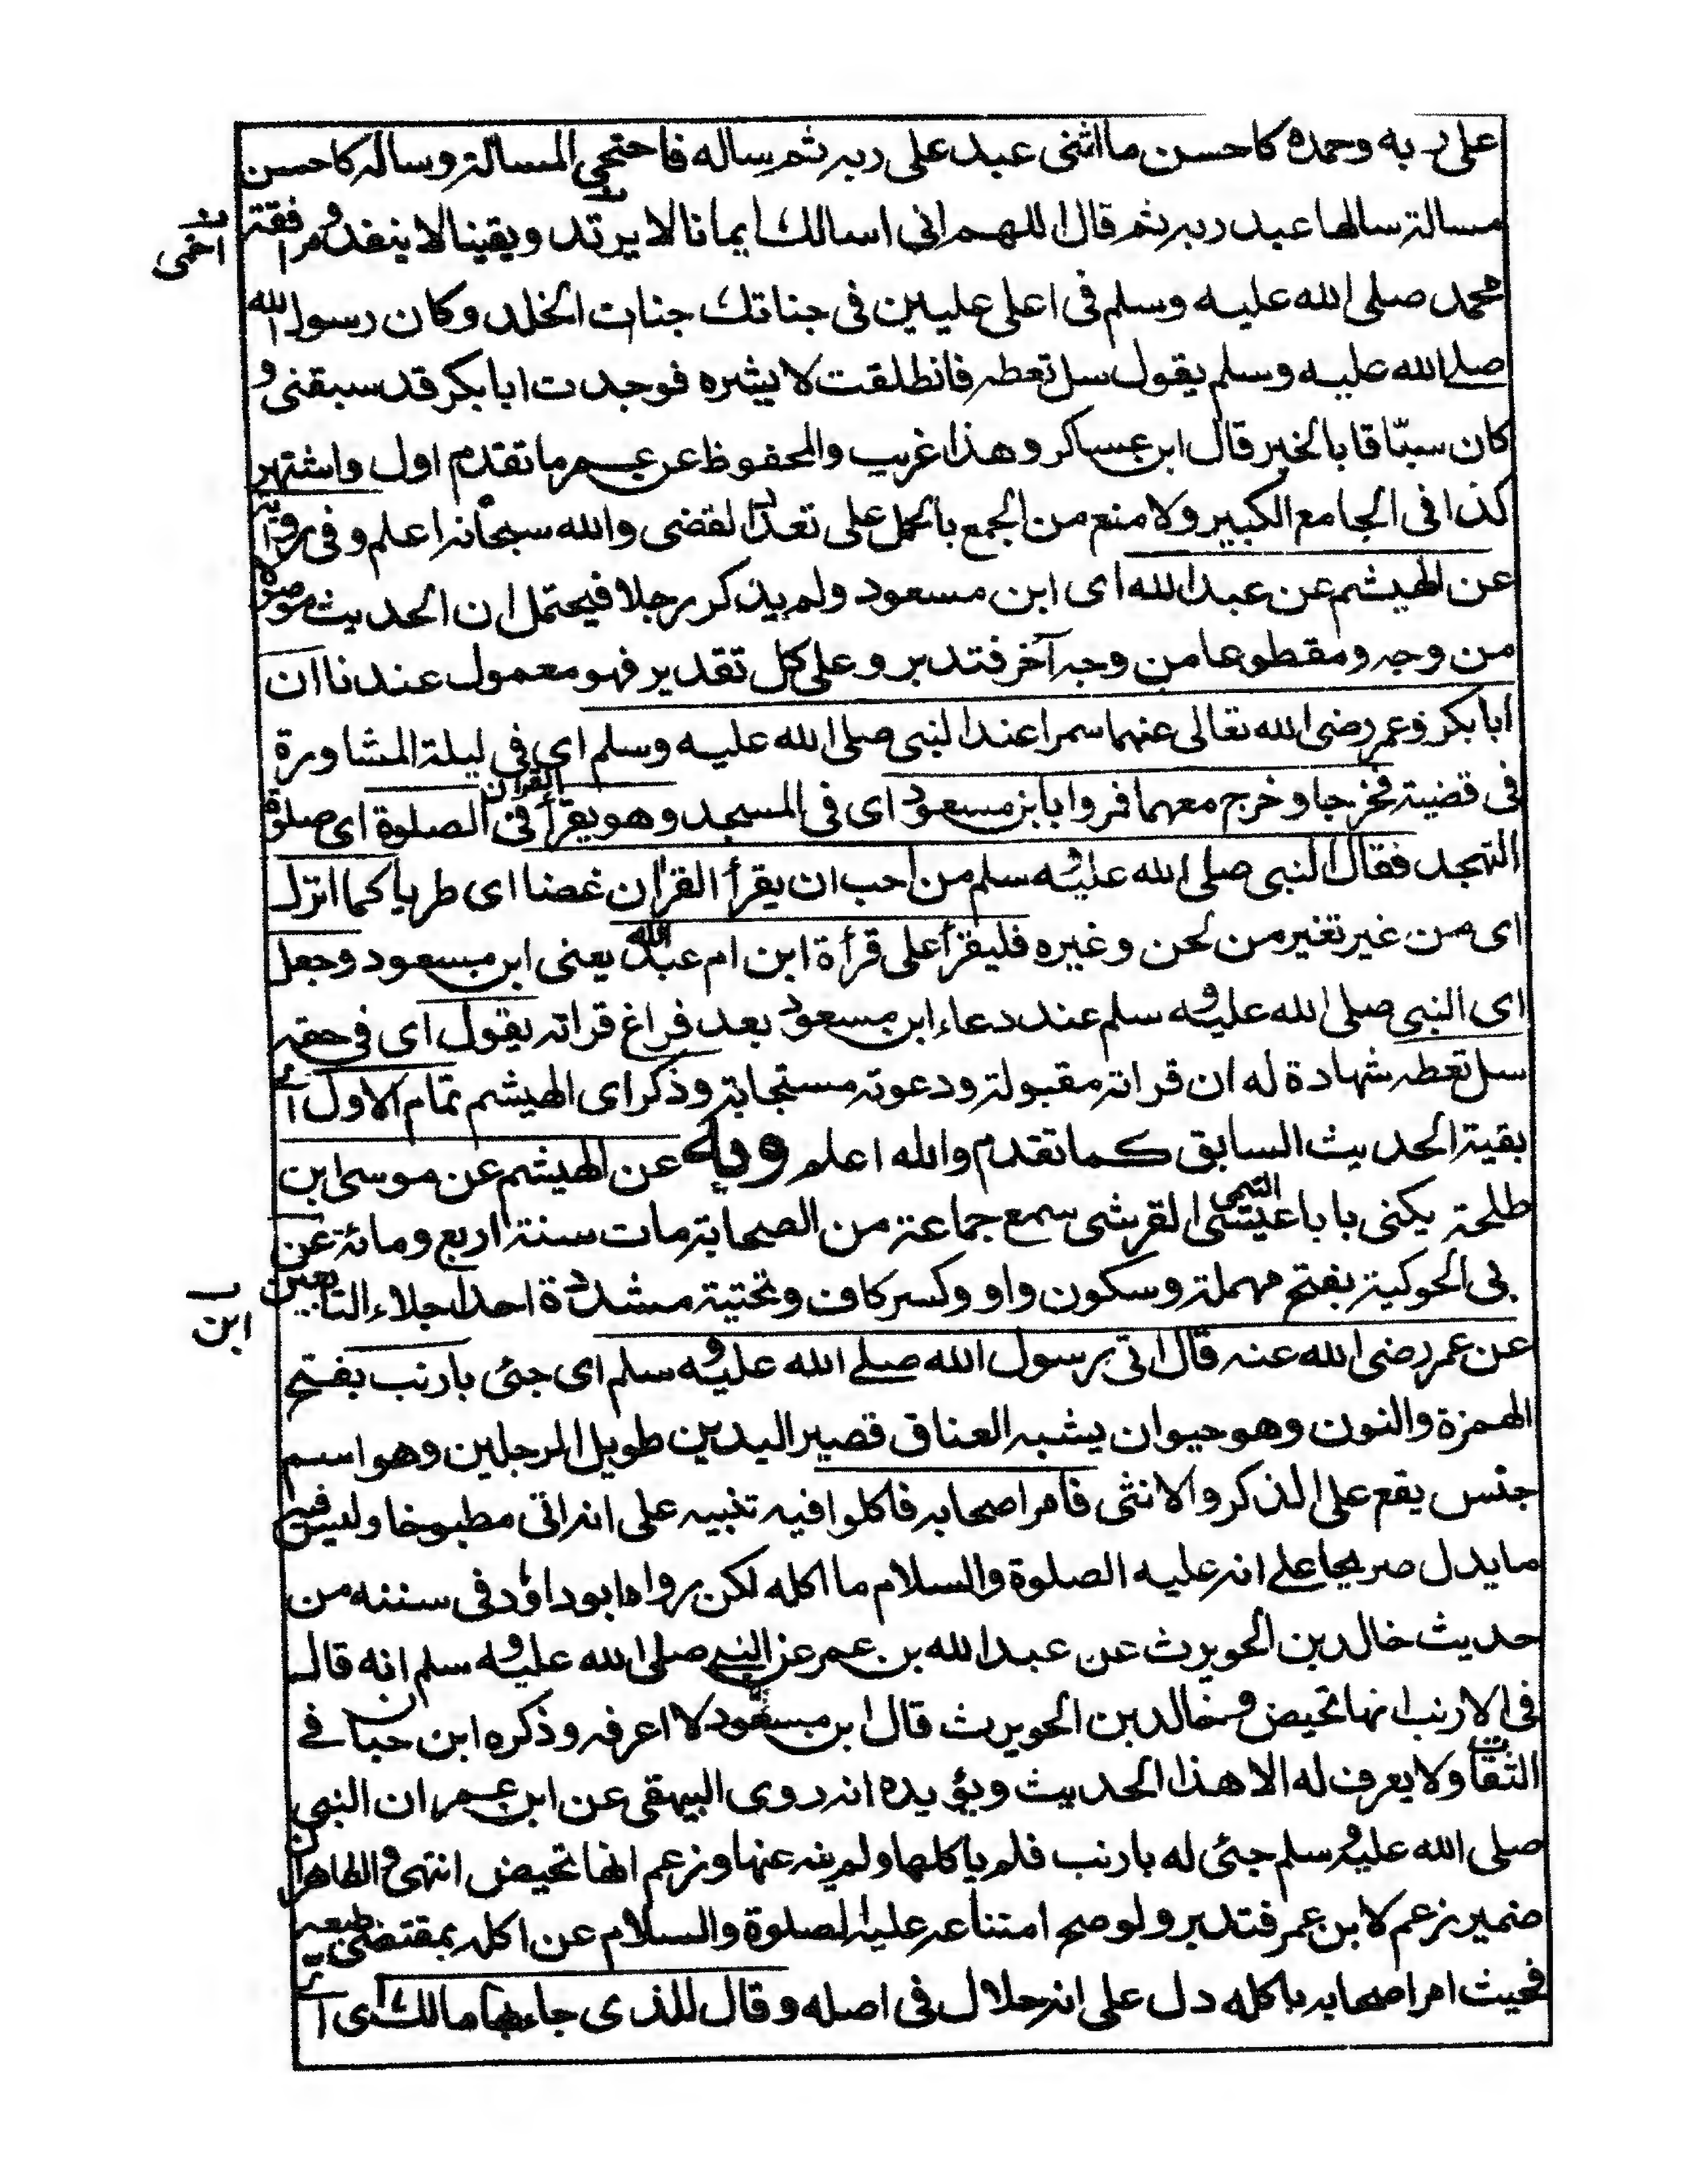 على ربه وحمده كاحسن ما اثنى عبد على ربه ثم ساله فاحتجى المسالة وساله كاحسن
مسالة سالها عبد ربه ثم قال اللهم انى اسالك ايمانا لا يرتد ويقينا لا ينفد ومرافقة
اخفى
محمد صلى الله عليه وسلم فى اعلى عليين فى جناتك جنات الخلد وكان رسول الله
صلے الله عليه وسلم يقول سل تعطه فانطلقت لابشره فوجدت ابا بكر قد سبقنى و
كان سبّاقا بالخير قال ابن عساكر وهذا غريب والمحفوظ عن عمر ما تقدم اول واشتهر
كذا فى الجامع الكبير ولا منع من الجمع بالحمل على تعدد القضى والله سبحانه اعلم وفى رواية
عن الهيثم عن عبد الله اى ابن مسعود ولم يذكر رجلا فيحتمل ان الحديث موصولا
من وجه ومقطوعا من وجه آخر فتدبر وعلى كل تقدير فهو معمول عندنا ان
ابا بكر وعمر رضى الله تعالى عنهما سمرا عند النبى صلى الله عليه وسلم اى فى ليلة المشاورة
فى قضية فخرجا وخرج معهما فمروا بابن مسعود اى فى المسجد وهو يقرأ القران فى الصلوة اى صلوة
التهجد فقال النبى صلى الله عليه وسلم من احب ان يقرأ القران غضنا اى طريا كما انزل
اى من غير تغير من لحن وغيره فليقرأ على قرأة ابن ام عبد الله يعنى ابن مسعود وجعل
اى النبى صلى الله عليه وسلم عند دعاء ابن مسعود بعد فراغ قراته يقول اى فى حقه
سل تعطه شهادة له ان قراته مقبولة ودعوته مستجابة وذكر اى الهيثم تمام الاول اے
بقية الحديث السابق كما تقدم والله اعلم وبه عن الهيثم عن موسى ابن
طلحة يكنى بابا عيسى التيمى القرشى سمع جماعة من الصحابة مات سنة اربع ومائة عن
بى الحوكية بفتح مهملة وسكون واو وكسر كاف وتحتية مشددة احد اجلاء التابعين
ابن
عن عمر رضى الله عنه قال اتى برسول الله صلے الله عليه وسلم اى جئى بارنب بفتح
الهمزة والنون وهو حيوان يشبه العناق قصير اليدين طويل الرجلين وهو اسم
جنس يقع على الذكر والانثى فامر اصحابه فاكلوا فيه تنبيه على انه اتى مطبوخا وليس فيه
ما يدل صريحا علے انه عليه الصلوة والسلام ما اكله لكن رواه ابو داؤد فى سننه من
حديث خالد بن الحويرث عن عبد الله بن عمر عن النبے صلى الله عليه وسلم انه قال
فى الارنب انها تحيض وخالد بن الحويرث قال ابن مسعود لا اعرفه وذكره ابن حبان فے
الثقات ولا يعرف له الا هذا الحديث ويؤيده انه روى البيهقى عن ابن عمر ان النبى
صلى الله عليه وسلم جئى له بارنب فلم ياكلها ولم ينه عنها وزعم انها تحيض انتهى والظاهر ان
ضمير زعم لابن عمر فتدبر ولو صح امتناعه عليه الصلوة والسلام عن اكله بمقتضى طبعه
فحيث امر اصحابه باكله دل على انه حلال فى اصله وقال للذى جاء بها مالك اى اے